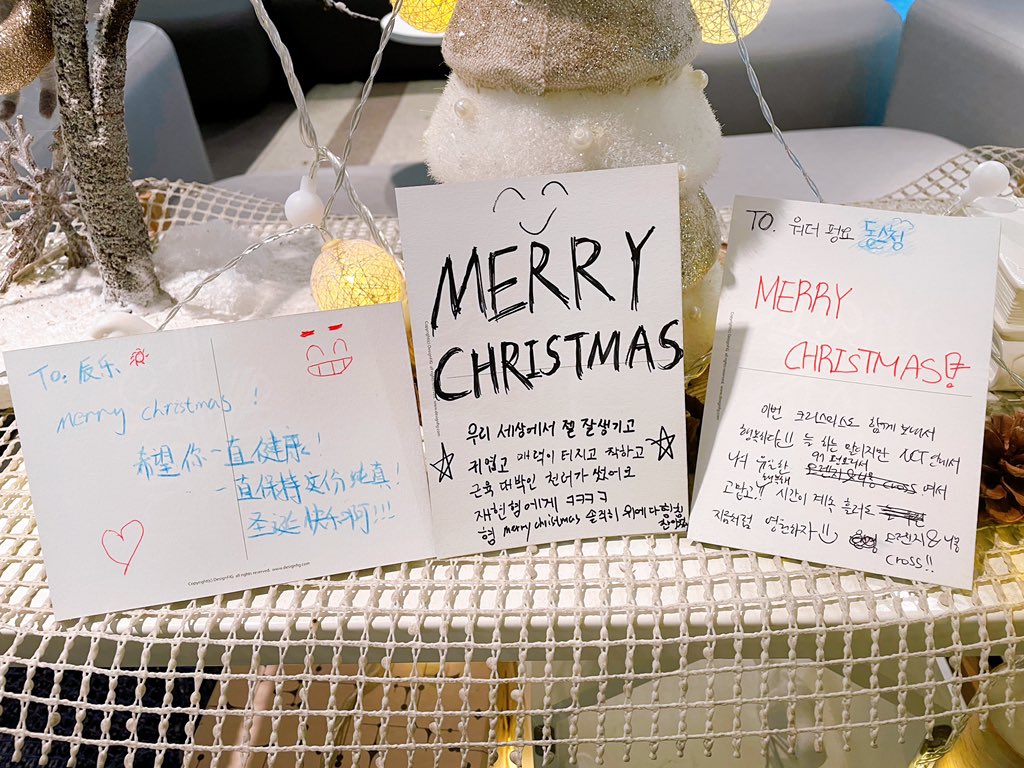 TO: 辰乐
merry christmas !
希望你一直健康!
一直保持这份纯真!
圣诞快乐啊!!!
Copyright(c) DesignHQ. all rights reserved. www.designhq.com
MERRY
CHRISTMAS
우리 세상에서 젤 잘생기고
귀엽고 매력이 터지고 착하고
근육 대박인 천러가 썼어요
재현형에게 ㅋㅋㅋㅋ
형 merry christmas 솔직히 위에 다
TO. 워더 펑요 동스청
MERRY
CHRISTMAS!
이번 크리스마스도 함께 보내서
행복하다!! 늘 하는 말이지만 NCT 안에서
나의 유일한 97 여서
고맙고!! 시간이 계속 흘러도
지금처럼 영원하자!! 윤 &
cross!!